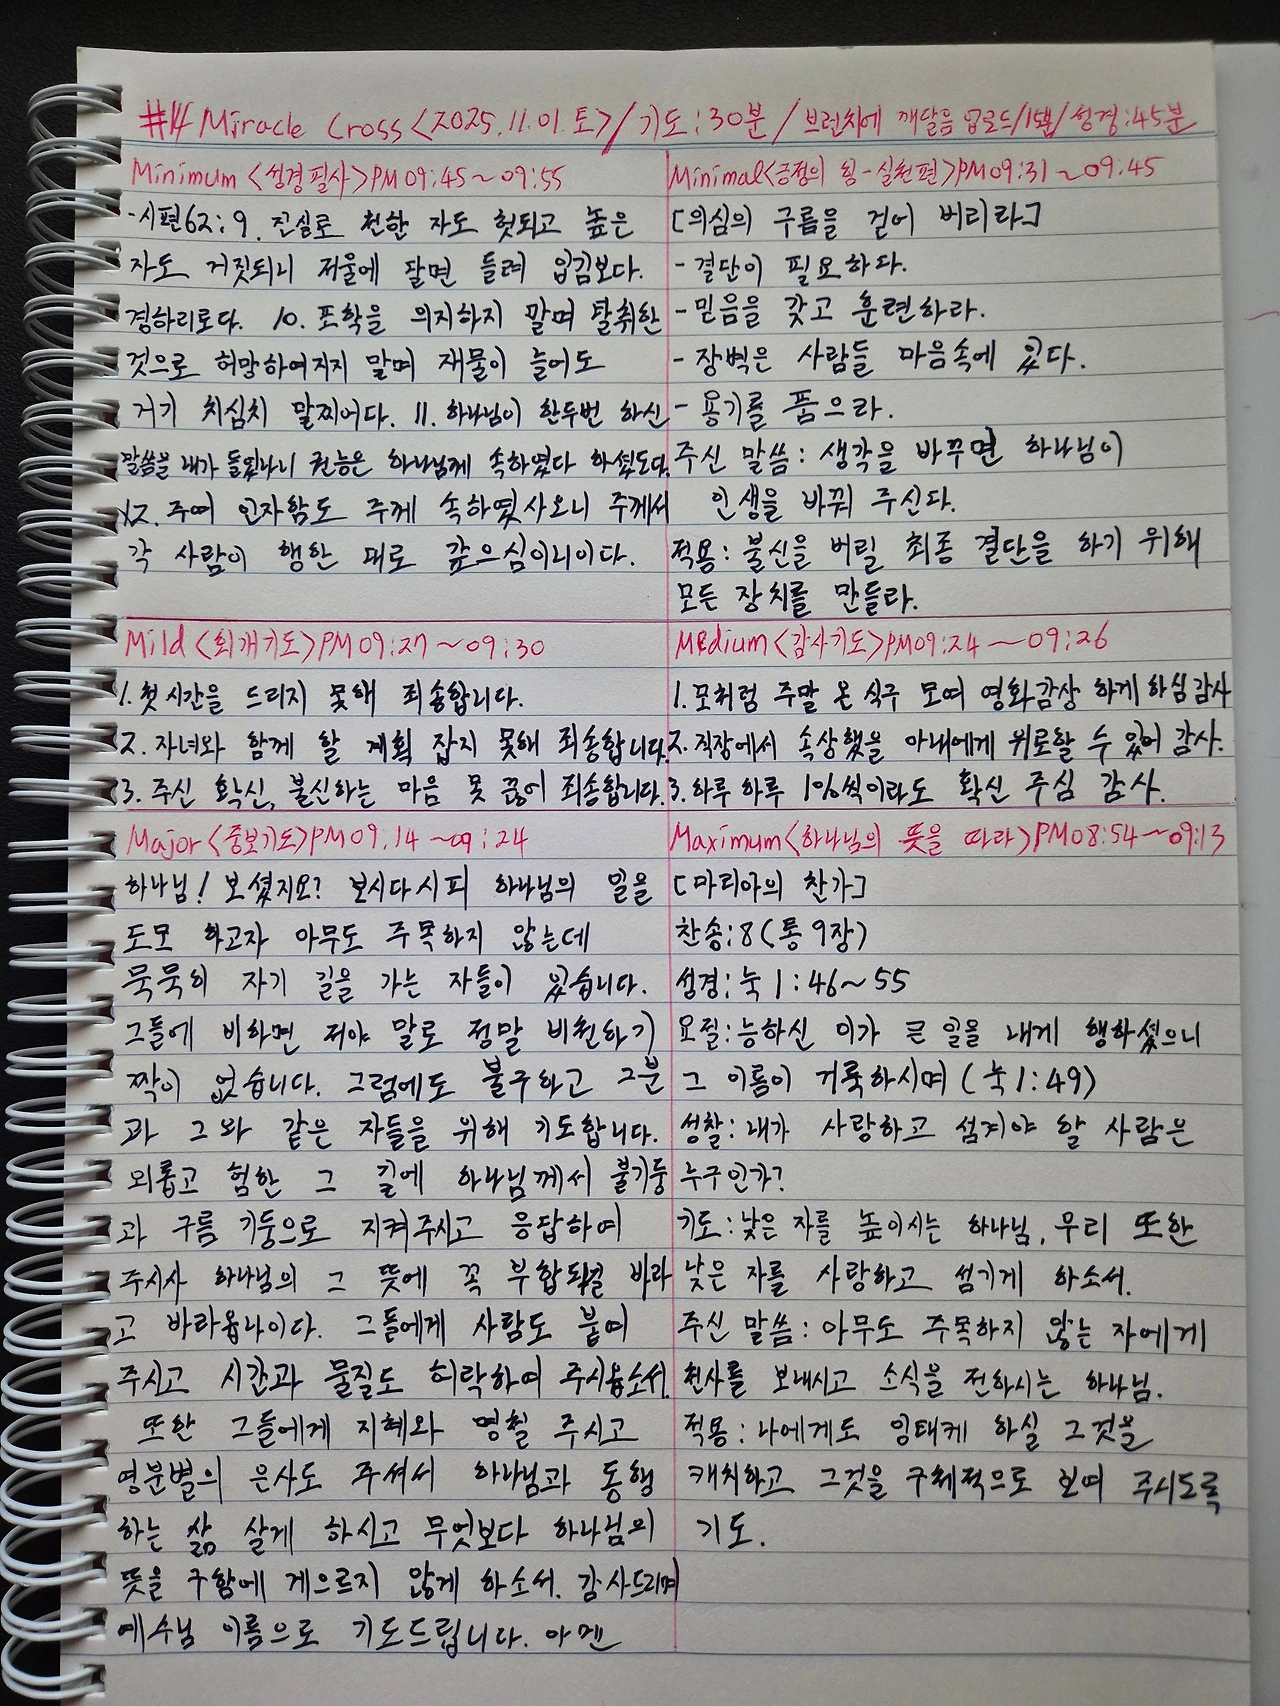 #14 Miracle Cross <2025.11.01.토> / 기도:30분 / 브런치에 깨달음 업로드/15분/ 성경:45분
Minimum <성경필사> PM 09:45~09:55
-시편62:9. 진실로 천한 자도 헛되고 높은
자도 거짓되니 저울에 달면 들려 입김보다.
경하리로다. 10. 포학을 의지하지 말며 탈취한
것으로 허망하여지지 말며 재물이 늘어도
거기 치심치 말찌어다. 11. 하나님이 한두번 하신
말씀을 내가 들었나니 권능은 하나님께 속하였다 하셨도다.
12. 주여 인자함도 주께 속하였사오니 주께서
각 사람이 행한 대로 갚으심이니이다.
Minimal<긍정의 힘-실천편>PM09:31~09:45
[의심의 구름을 걷어 버리라]
- 결단이 필요하다.
- 믿음을 갖고 훈련하라.
- 장벽은 사람들 마음속에 있다.
- 용기를 품으라.
주신 말씀: 생각을 바꾸면 하나님이
인생을 바꿔 주신다.
적용: 불신을 버릴 최종 결단을 하기 위해
모든 장치를 만들라.
Mild <회개기도>PM09:27~09:30
1. 첫 시간을 드리지 못해 죄송합니다.
2. 자녀와 함께 할 계획 잡지 못해 죄송합니다.
3. 주신 확신, 불신하는 마음 못 끊어 죄송합니다.
Medium <감사기도>PM09:24~09:26
1. 모처럼 주말 온 식구 모여 영화감상 하게 하심 감사
2. 직장에서 속상했을 아내에게 위로할 수 있어 감사.
3. 하루 하루 1%씩이라도 확신 주심 감사.
Major <중보기도>PM09:14~09:24
하나님! 보셨지요? 보시다시피 하나님의 일을
도모 하고자 아무도 주목하지 않는데
묵묵히 자기 길을 가는 자들이 있습니다.
그들에 비하면 저야 말로 정말 비천하기
짝이 없습니다. 그럼에도 불구하고 그분
과 그와 같은 자들을 위해 기도합니다.
외롭고 험한 그 길에 하나님께서 불기둥
과 구름 기둥으로 지켜주시고 응답하여
주시사 하나님의 그 뜻에 꼭 부합되길 바라
고 바라옵나이다. 그들에게 사람도 붙여
주시고 시간과 물질도 허락하여 주시옵소서.
또한 그들에게 지혜와 명철 주시고
영분별의 은사도 주셔서 하나님과 동행
하는 삶 살게 하시고 무엇보다 하나님의
뜻을 구함에 게으르지 않게 하소서. 감사드리며
예수님 이름으로 기도드립니다. 아멘
Maximum<하나님의 뜻을 따라>PM08:54~09:13
[마리아의 찬가]
찬송:8(통9장)
성경:눅1:46~55
요절:능하신 이가 큰 일을 내게 행하셨으니
그 이름이 거룩하시며(눅1:49)
성찰:내가 사랑하고 섬겨야 할 사람은
누구인가?
기도:낮은 자를 높이시는 하나님, 우리 또한
낮은 자를 사랑하고 섬기게 하소서.
주신 말씀: 아무도 주목하지 않는 자에게
천사를 보내시고 소식을 전하시는 하나님.
적용:나에게도 잉태케 하실 그것을
캐치하고 그것을 구체적으로 보여 주시도록
기도.